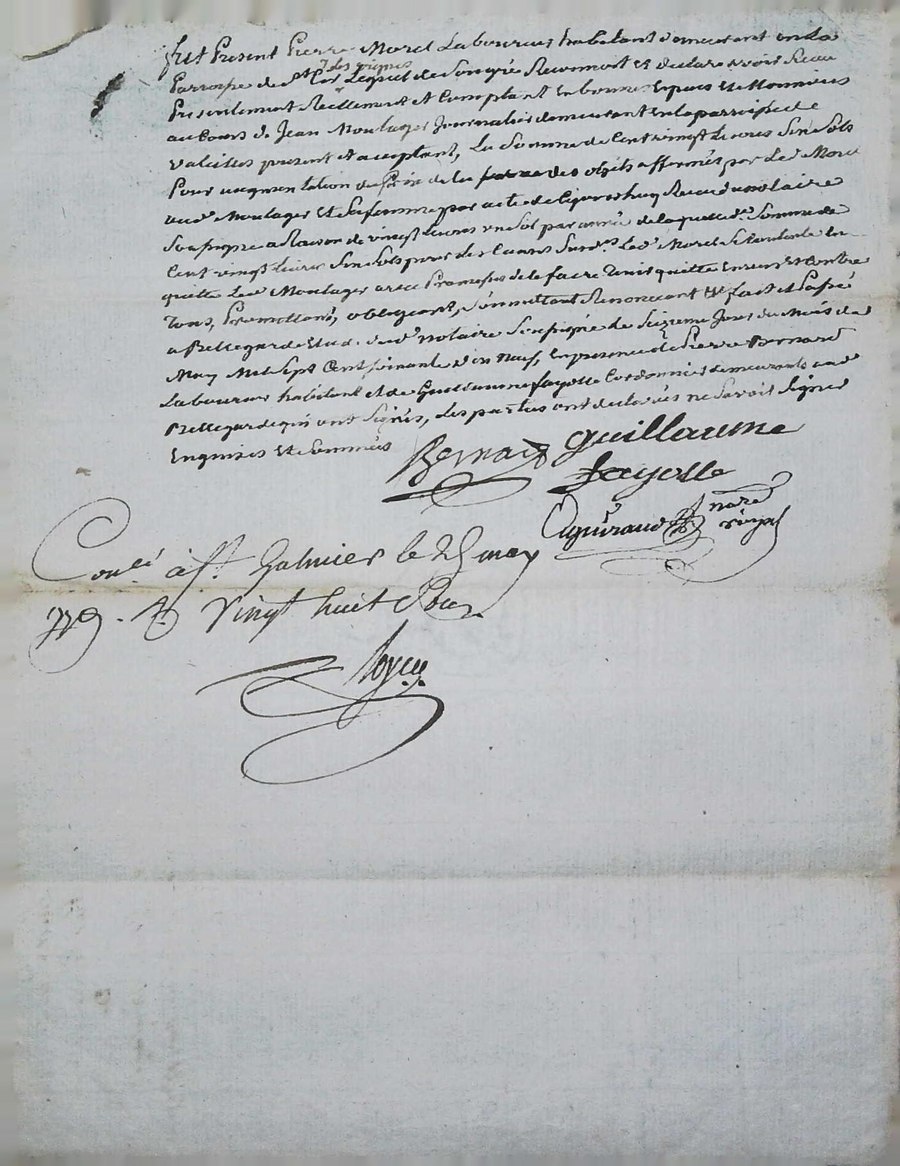 fut Present Pierre Morel Laboureur habitant demeurant en La
Parroisse de St Cir les vignes Lequel de son gré Reconnoit et declare avoir Receu
Presentement Reellement et Comptant En bonnes Especes et Monnoies
au Cours de Jean Moulager Journalier demeurant En la parroisse de
valeilles present et acceptant, La Somme de Cent vingt Livres Six Sols
Pour augmentation du Prix de la ferme des objets affermés par Led Morel
aud Moulager Et Sa femme par acte de Ce jourdhuy Receu du notaire
Soussigné a Raison de vingt Livres un Sol par année de laquelle de Somme de
Cent vingt Livres Six Sols pour les Causes Susd. Led Morel Se Contente En
quitte Led Moulager avec Promesse de le faire Tenir quitte Envers Et Contre
Tous, Promettant, obligeant, Soumettant Renonceant &c fait et Passé
a Bellegarde Etude dud notaire Soussigné Le Seizieme Jour du Mois de
May Mil Sept Cent Soixante dix Neuf, En presence de Pierre Bernard
Laboureur habitant et de Guillaume fayolle Cordonnier demeurants aud
Bellegarde qui ont Signés, Les parties ont declarées ne Savoir Signer
Enquises Et Sommées
Bernard guillaume
fayolle
nore
royal
Conlé à St. Galmier le 25 may
779. R vingt huit s Pour